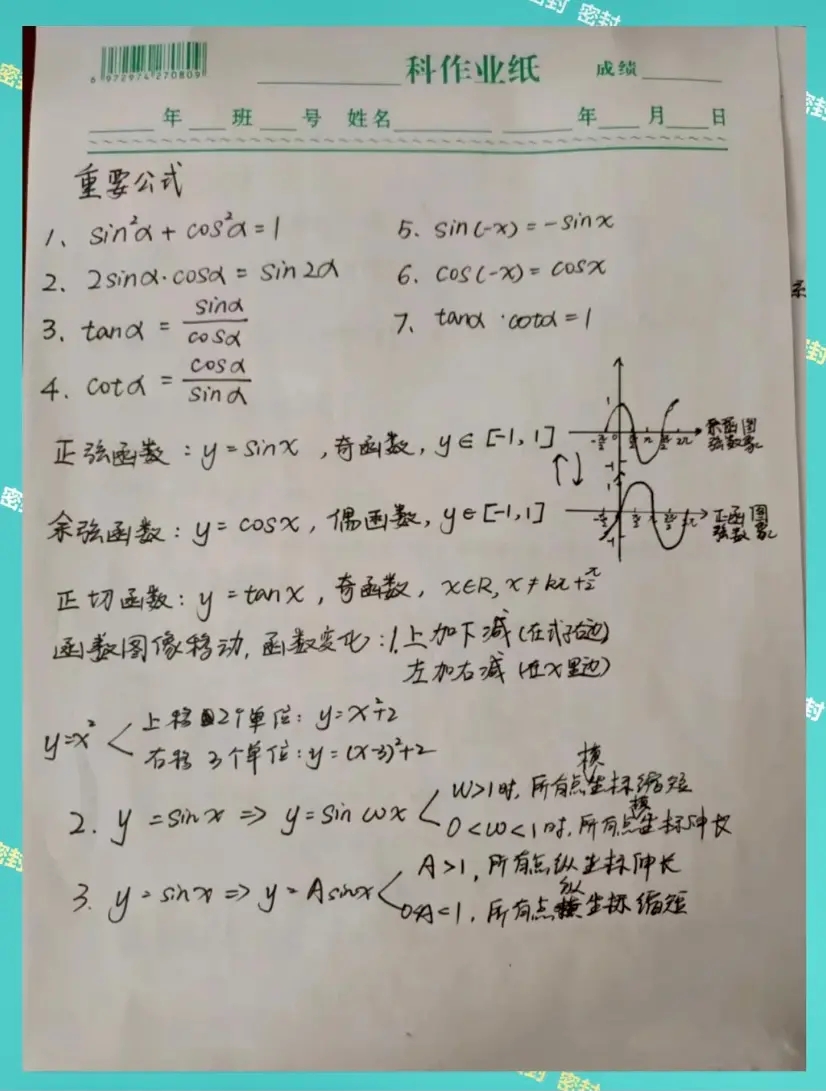 密封 密封
6 972974 270809
科作业纸 成绩
年 班 号 姓名 年 月 日
重要公式
1、sin²α + cos²α = 1
2、2sinα·cosα = sin2α
3、tanα = sinα/cosα
4、cotα = cosα/sinα
5、sin(-x) = -sinx
6、cos(-x) = cosx
7、tanα·cotα = 1
正弦函数：y = sinx，奇函数，y∈[-1，1]
余弦函数图象
余弦函数：y = cosx，偶函数，y∈[-1,1]
正弦函数图象
正切函数：y = tanx，奇函数，x∈R, x≠kπ+π/2
函数图像移动，函数变化：1.上加下减（在式子右边）
左加右减（在x里边）
y=x²
上移2个单位：y=x²+2
右移3个单位：y=(x-3)²+2
2. y = sinx ⇒ y = sin ωx
W>1时，所有点横坐标缩短
0<ω<1时，所有点横坐标伸长
3. y = sinx ⇒ y = Asinx
A>1，所有点纵坐标伸长
0<A<1，所有点纵坐标缩短
密封
密封